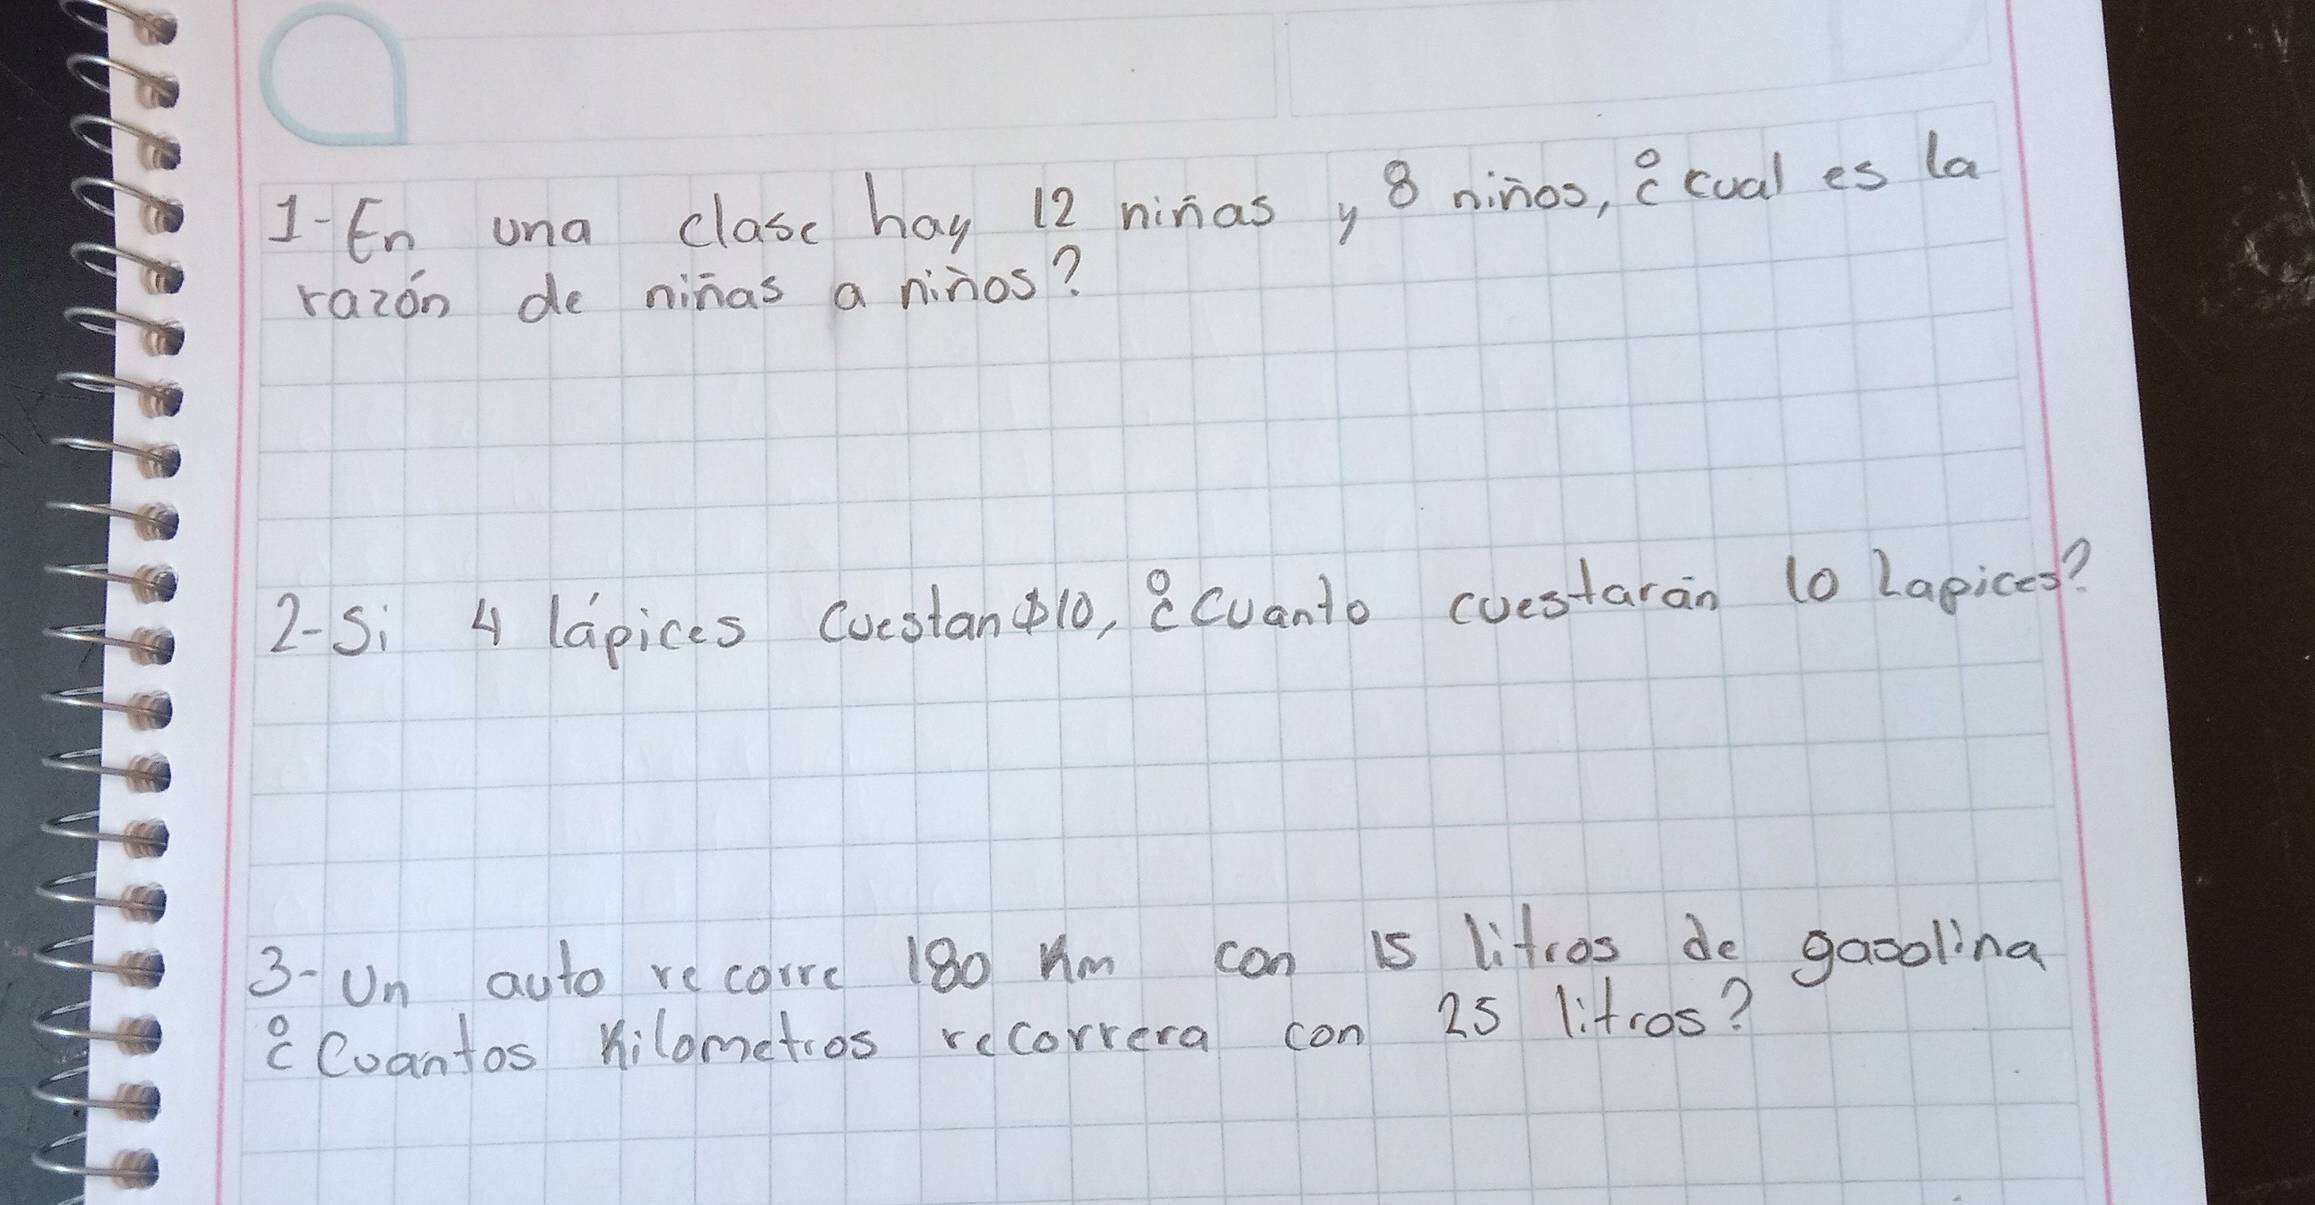 1-En una clase hay 12 niñas y 8 niños, ¿cual es la
razón de niñas a niños?
2-Si 4 lápices cuestan $10, ¿Cuanto cuestarán 10 Lapices?
3-Un auto recorre 180 Km con 15 litros de gasolina
¿Cuantos Kilometros recorrera con 25 litros?